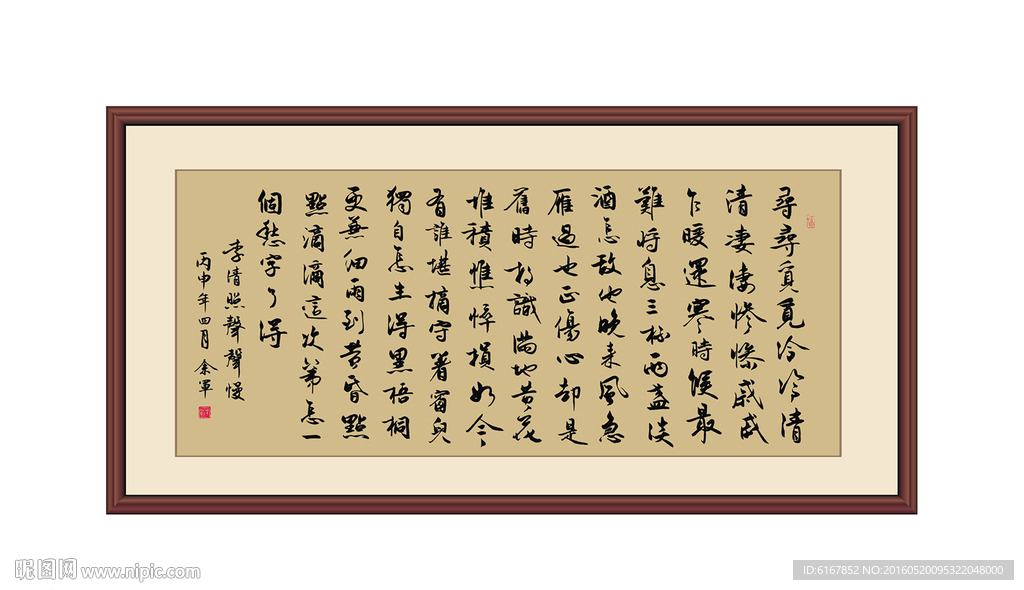 尋尋覓覓冷冷清
清凄凄慘慘戚戚
乍暖還寒時候最
難將息三杯兩盞淡
酒怎敵他晚来風急
雁過也正傷心却是
舊時相識滿地黄花
堆積憔悴損如今
有誰堪摘守著窗兒
獨自怎生得黑梧桐
更兼細雨到黄昏點
點滴滴這次第怎一
個愁字了得
李清照聲聲慢
丙申年四月 余軍
昵图网 www.nipic.com
ID:6167852 NO:20160520095322048000